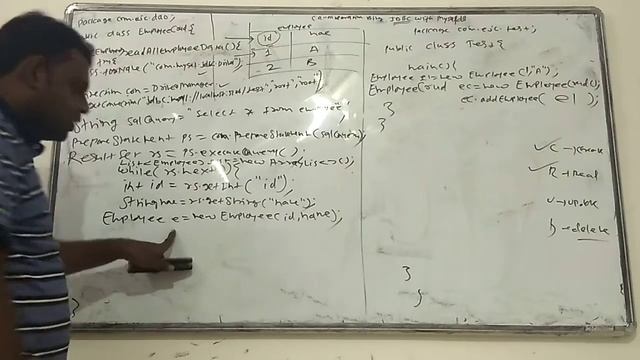 package com.eic.dao;
class EmployeeCrud {
readAllEmployeeDetails() {
employee
id name
1 A
2 B
("com.mysql.jdbc.Driver")
connection con = DriverManager.
"root", "root")
String selQuery = "select * from employee";
PrepareStatement ps = con.prepareStatement(selQuery);
ResultSet rs = ps.executeQuery();
List<Employee> = new ArrayList<>();
while(rs.next()) {
int id = rs.getInt("id");
String name = rs.getString("name");
Employee e = new Employee(id, name);
}
CRUD operation using JDBC with Mysql
package com.eic.test;
public class Test {
main() {
Employee e1 = new Employee(1,"A");
EmployeeCrud ec = new EmployeeCrud();
ec.addEmployee( e1 );
}
}
C → create
R → Read
U → update
D → delete
}
}